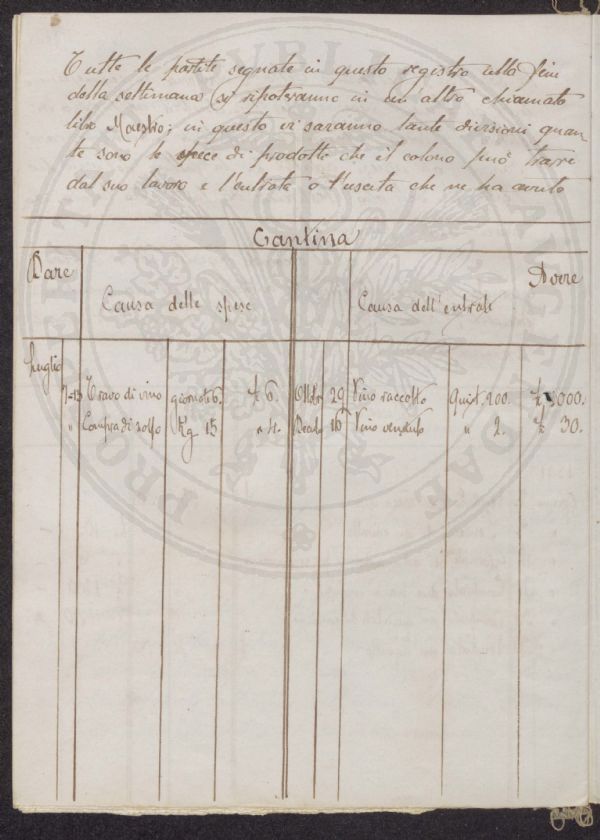 Tutte le partite segnate in questo registro alla fine
della settimana si riporteranno in un altro chiamato
libro Maestro; in questo vi saranno tante divisioni quan-
te sono le spece di prodotte che il colono può trarre
dal suo lavoro e l'entrata o l'uscita che ne ha avuto
Cantina
Dare Avere
Causa delle spese Causa dell'entrate
Luglio
di vino giornate 6. £ 6. Ottobre 29 Vino raccolto Quint. 200. £ 3000.
" Compra di zolfo Kg 15 " 4. 16 Vino venduto " 2. £ 30.